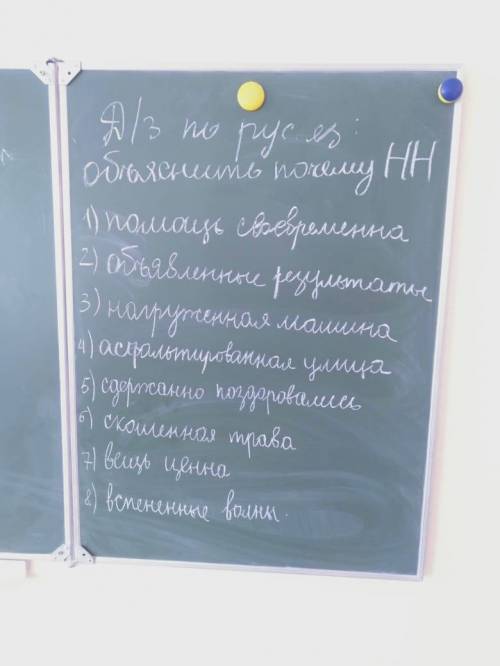 Д/з по рус яз:
объяснить почему НН
1) помощь своевременна
2) объявленные результаты
3) нагруженная машина
4) асфальтированная улица
5) сдержанно поздоровались
6) скошенная трава
7) вещь ценна
8) вспененные волны.